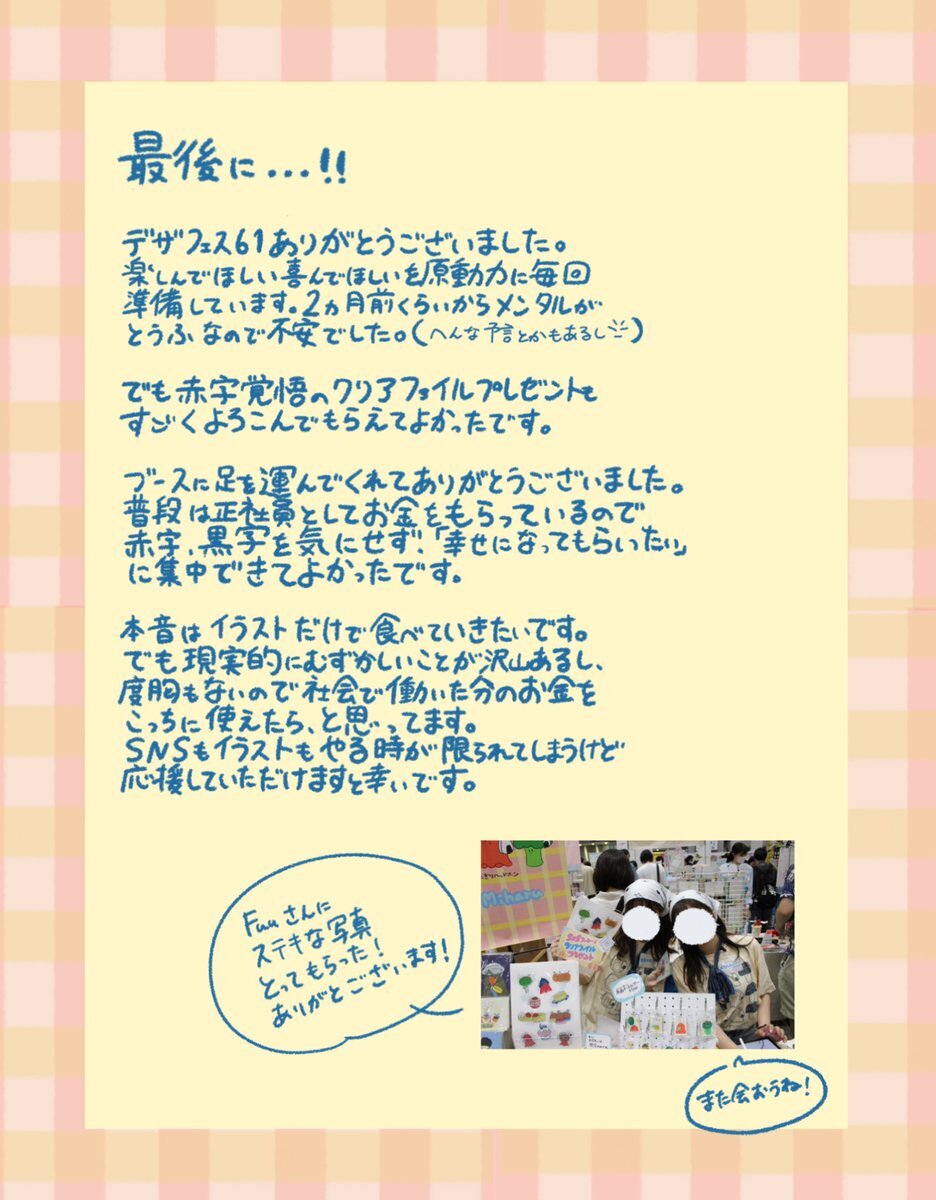 最後に...!!
デザフェス61ありがとうございました。
楽しんでほしい喜んでほしいを原動力に毎回
準備しています。2ヵ月前くらいからメンタルが
とうふなので不安でした。(へんな予言とかもあるし)
でも赤字覚悟のクリアファイルプレゼントも
すごくよろこんでもらえてよかったです。
ブースに足を運んでくれてありがとうございました。
普段は正社員としてお金をもらっているので
赤字、黒字を気にせず「幸せになってもらいたい」
に集中できてよかったです。
本音はイラストだけで食べていきたいです。
でも現実的にむずかしいことが沢山あるし、
度胸もないので社会で働いた分のお金を
こっちに使えたら、と思ってます。
SNSもイラストもやる時が限られてしまうけど
応援していただけますと幸いです。
Fuuさんに
ステキな写真
とってもらった!
ありがとございます!
Miharu
クリアファイル
プレゼント
また会おうね!